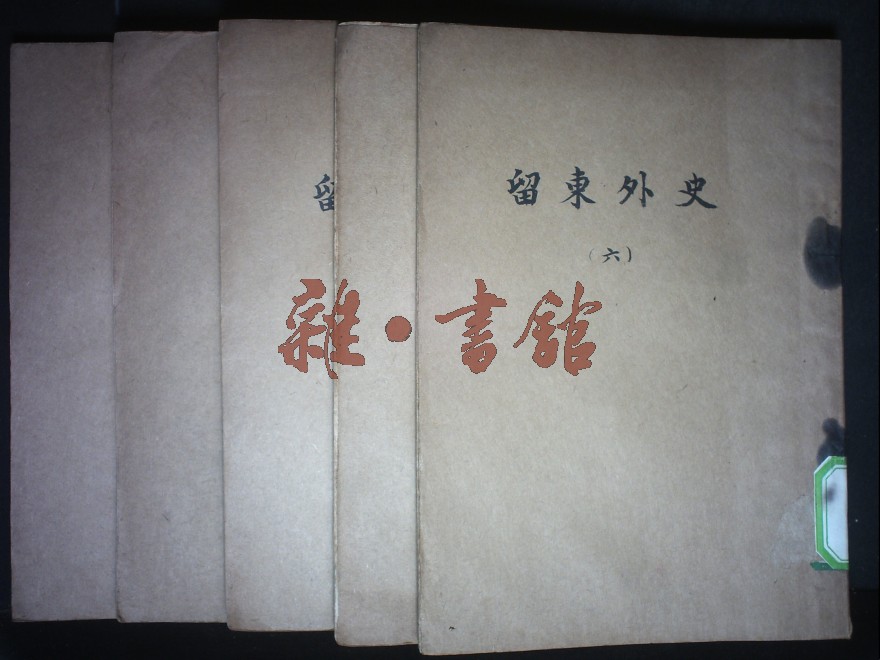 留東外史
（六）
留
雜·書館